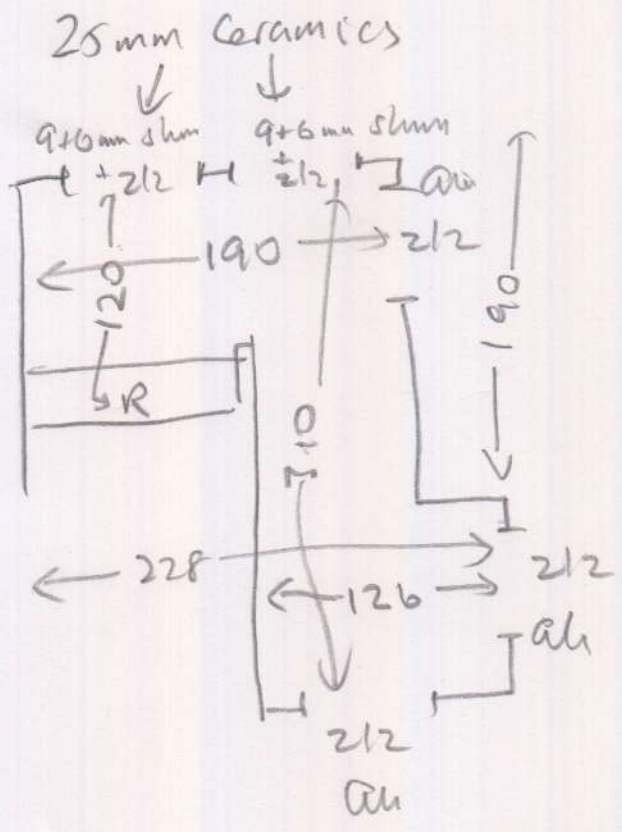 25mm Ceramics
9+6mm shim 9+6mm shim
+ 212 + 212,
190 212
120
190
R
310
228 212
126
212